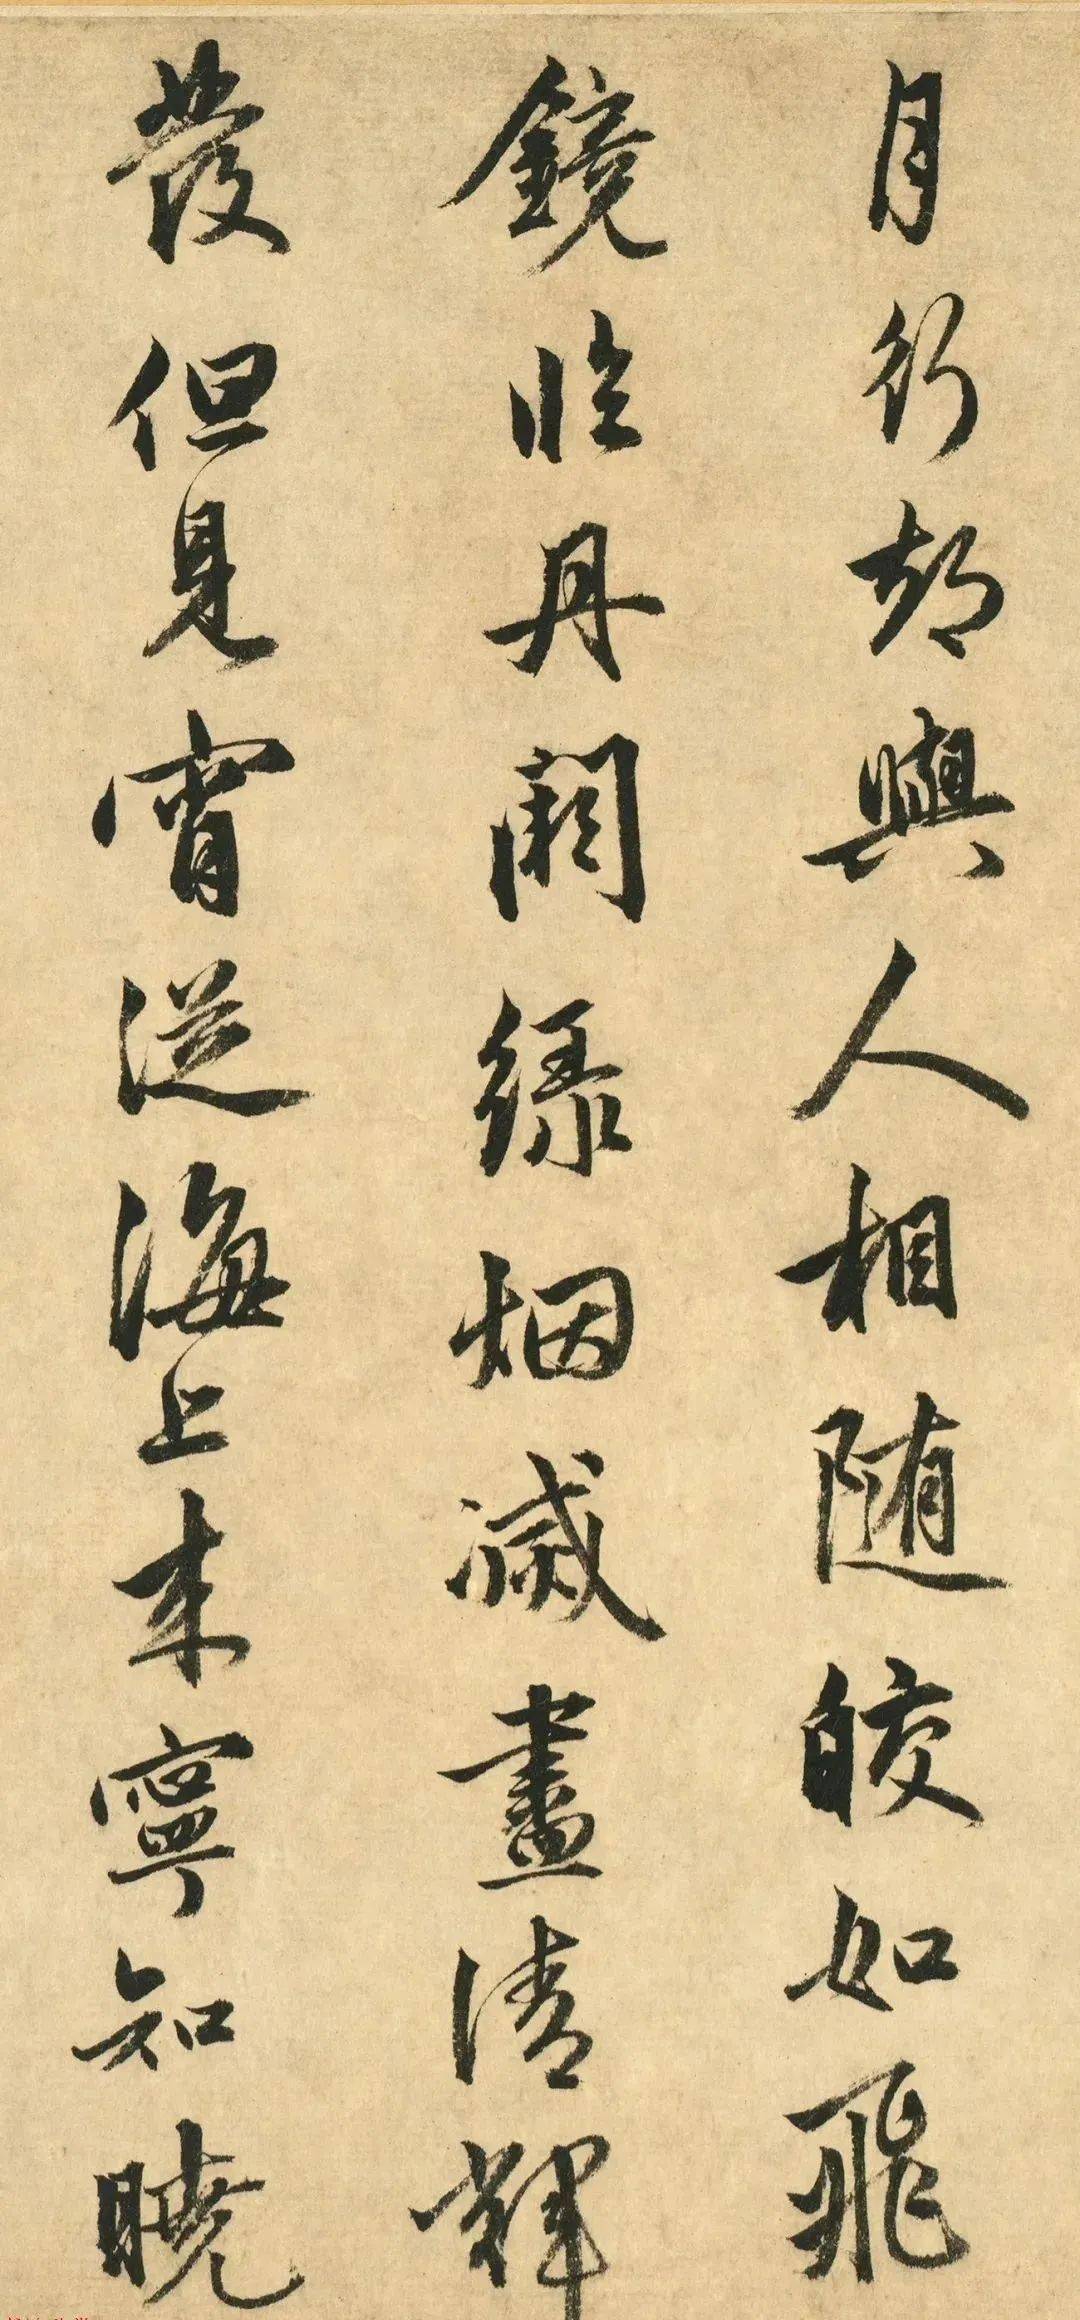 月行却與人相随皎如飛
鏡臨丹闕緑烟滅盡清輝
發但見宵從海上来寧知曉